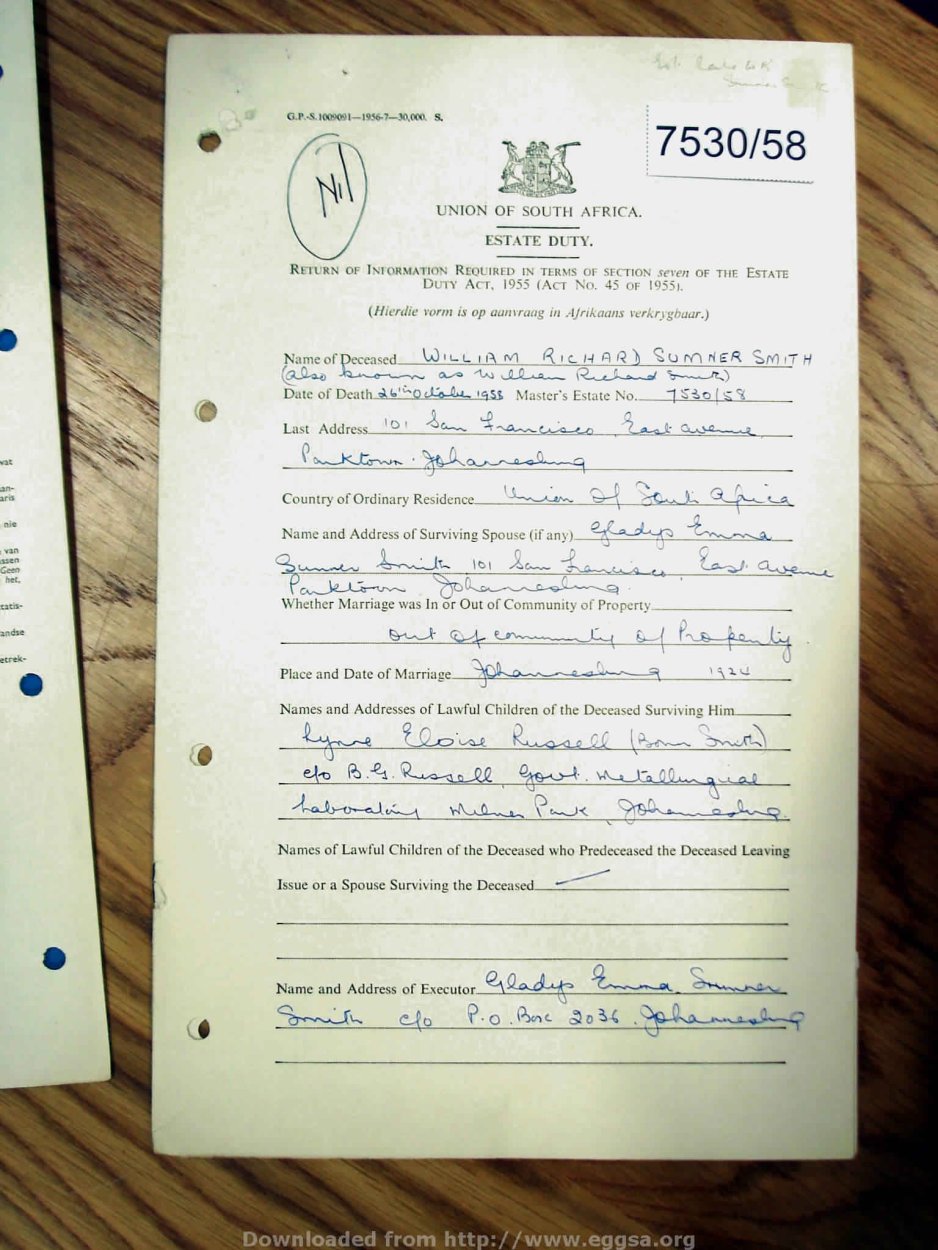 G.P.-S.1009091—1956-7—30,000. S.
7530/58
Nil
UNION OF SOUTH AFRICA.
ESTATE DUTY.
RETURN OF INFORMATION REQUIRED IN TERMS OF SECTION seven OF THE ESTATE
DUTY ACT, 1955 (ACT NO. 45 OF 1955).
(Hierdie vorm is op aanvraag in Afrikaans verkrygbaar.)
Name of Deceased WILLIAM RICHARD SUMNER SMITH
(also known as William Richard Smith)
Date of Death 26th October 1958 Master's Estate No. 7530/58
Last Address 101 San Francisco East avenue
Parktown. Johannesburg
Country of Ordinary Residence Union of South Africa
Name and Address of Surviving Spouse (if any) Gladys Emma
Sumner Smith 101 San Francisco, East Avenue
Parktown Johannesburg.
Whether Marriage was In or Out of Community of Property
out of community of Property.
Place and Date of Marriage Johannesburg 1924
Names and Addresses of Lawful Children of the Deceased Surviving Him
Lynne Eloise Russell (Born Smith)
c/o B.G. Russell Govt. Metallurgical
Laboratory Milner Park, Johannesburg.
Names of Lawful Children of the Deceased who Predeceased the Deceased Leaving
Issue or a Spouse Surviving the Deceased
Name and Address of Executor Gladys Emma Sumner
Smith c/o P.O. Box 2036, Johannesburg
vat
an-
aris
nie
van
ssen
Geen
het,
tatis-
andse
etrek-
Downloaded from http://www.eggsa.org